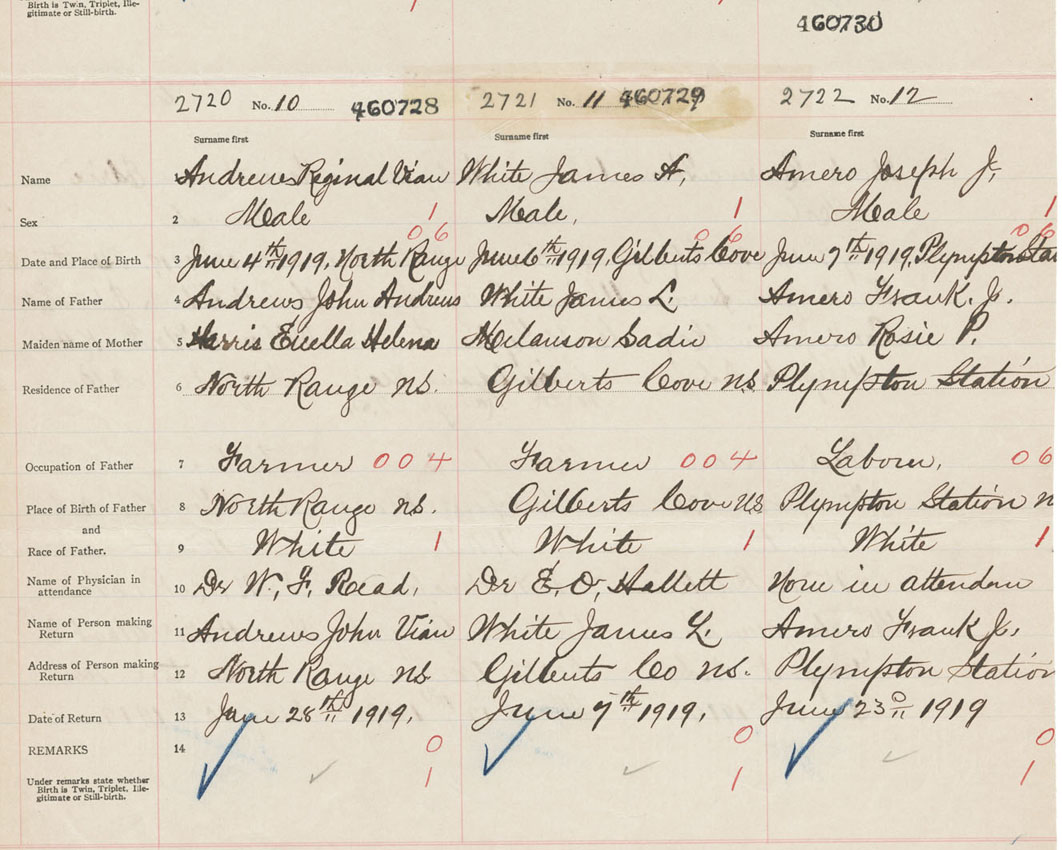 Birth is Twin, Triplet, Ille-
gitimate or Still-birth.
460730
2720 No. 10 460728 2721 No. 11 460729 2722 No. 12
Surname first Surname first Surname first
Name Andrews Reginal Vian White James A, Amero Joseph J,
Sex 2 Male 1 Male, 1 Male 1
06 06 06
Date and Place of Birth 3 June 4th 1919, North Range June 6th 1919, Gilberts Cove June 7th 1919, Plympton Sta
Name of Father 4 Andrews John Andrews White James L. Amero Frank. J.
Maiden name of Mother 5 Harris Euella Helena Melanson Sadie Amero Rosie P.
Residence of Father 6 North Range NS. Gilberts Cove NS Plympton Station
Occupation of Father 7 Farmer 004 Farmer 004 Laborer, 06
Place of Birth of Father 8 North Range NS. Gilberts Cove NS Plympton Station N
and
Race of Father. 9 White 1 White 1 White 1
Name of Physician in
attendance 10 Dr W, F, Read, Dr E, O, Hallett None in attendan
Name of Person making
Return 11 Andrews John Vian White James L. Amero Frank J.
Address of Person making
Return 12 North Range NS Gilberts Co NS. Plympton Station
Date of Return 13 June 28th 1919. June 7th 1919. June 23 1919
REMARKS 14 0 0 0
Under remarks state whether
Birth is Twin, Triplet, Ille-
gitimate or Still-birth.
1 1 1